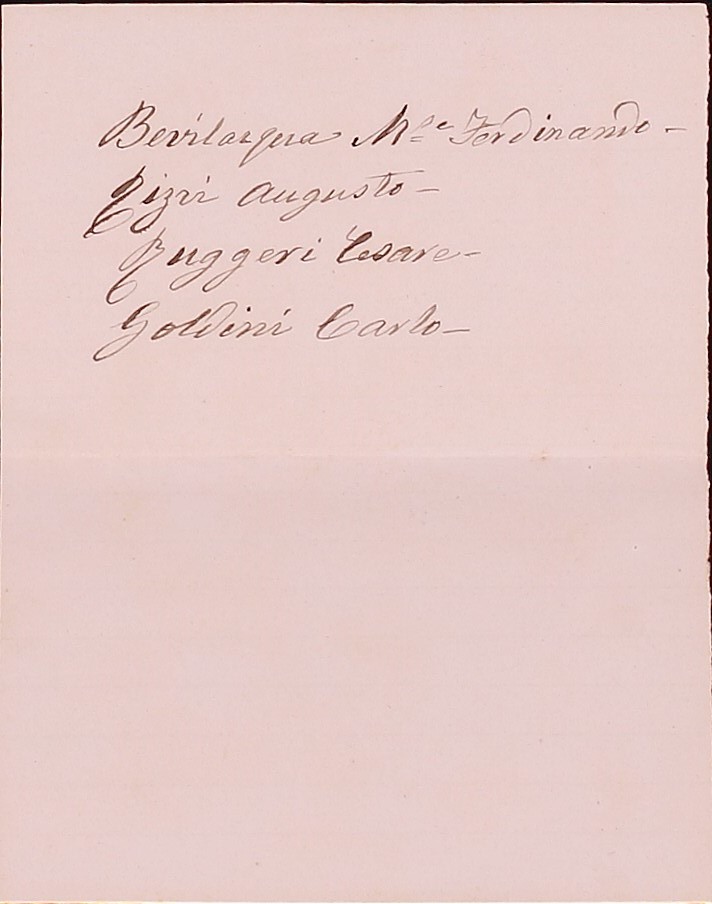 Bevilacqua M.se Ferdinando -
Rizzi Augusto -
Ruggeri Cesare -
Goldini Carlo -